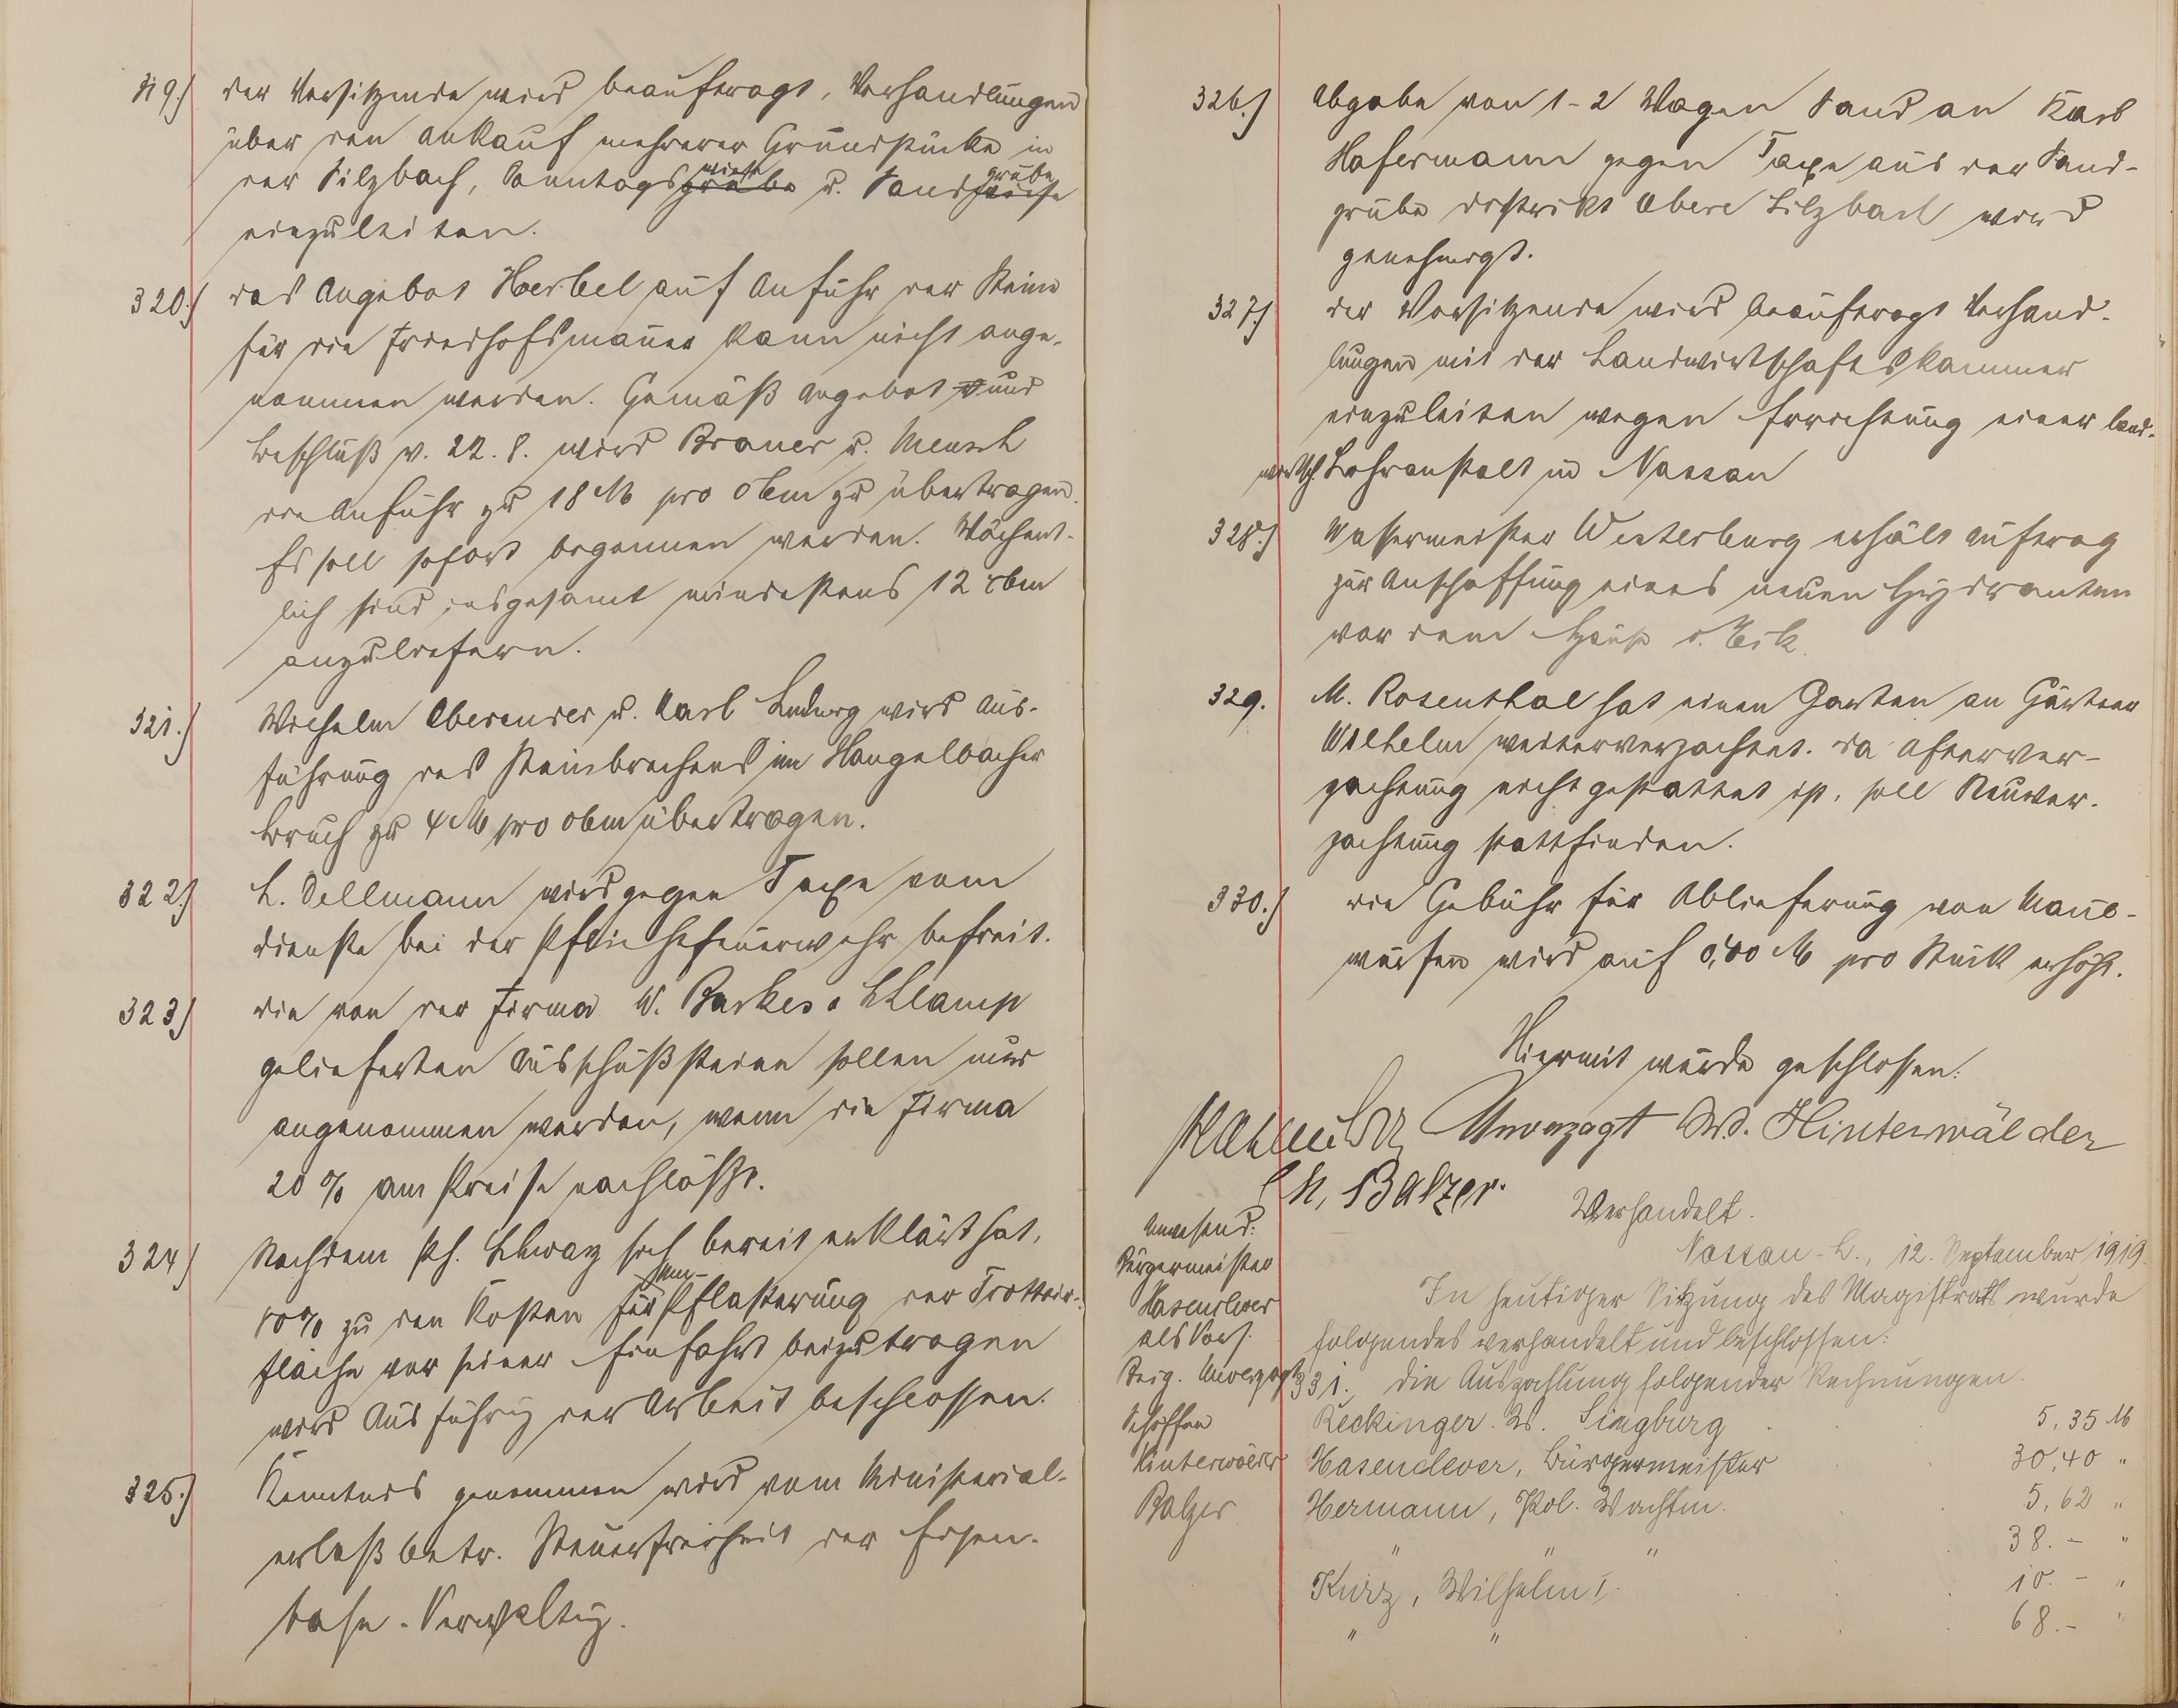 319.) der Vorsitzende wird beauftragt, Verhandlungen
über den Ankauf mehrerer Grundstücke in
der Silzbach, Sonntagsgrube wiese u. Sandwiese grube
einzuleiten.
320.) das Angebot Herbel auf Anfuhr der Steine
für die Friedhofsmauer kann nicht ange-
nommen werden. Gemäß Angebot und
Beschluß v. 22. 8. wird Braner u. Mensch
die Anfuhr zu 18 M pro cbm zu übertragen.
Es soll sofort begonnen werden. Wöchent-
lich sind insgesamt mindestens 12 cbm
anzuliefern.
321.) Wilhelm Oberender u. Karl Ludwig wird Aus-
führung des Steinbrechens im Hangelbacher
Bruch zu 4 M pro cbm übertragen.
322.) L. Dellmann wird gegen Taxe vom
dienste bei der Pflichtfeuerwehr befreit.
323) die von der Firma W. Barkes
gelieferten Ausschußsteine sollen nur
angenommen werden, wenn die Firma
20 % am Preise nachläßt.
324) Nachdem Ph. sich bereit erklärt hat,
% zu den Kosten für Pflasterung der Trottoir-
fläche vor seiner Einfahrt beizutragen
wird Ausführg der Arbeit beschlossen.
325.) Kenntnis genommen wird vom Ministerial-
erlaß betr. Steuerfreiheit der Eisen-
bahn-Verwaltg.
326.) Abgabe von 1-2 Wagen Sand an Karl
Hofermann gegen Taxe aus der Sand-
grube distrikt Obere Silzbach wird
genehmigt.
327.) der Vorsitzende wird beauftragt Verhand-
lungen mit der Landwirtschaftskammer
einzuleiten wegen Errichtung einer land-
wirtsch. Lehranstalt in Nassau
328.) Wassermeister Winterburg erhält Auftrag
zur Anschaffung eines neuen Hydranten
vor dem Hause
329. M. Rosenthal hat einen Garten an Gärtner
Wilhelm weiterverpachtet. Da Afterver-
pachtung nicht gestattet ist, soll Neuver-
pachtung stattfinden.
330.) die Gebühr für Ablieferung von Maul-
würfen wird auf 0,40 M pro Stück erhöht.
Hiermit wurde geschlossen.
Unverzagt W. Hinterwälder
Ch. Balzer.
Verhandelt.
Nassau-L., 12. September 1919.
Anwesend:
Bürgermeister
Hasenclever
als Vors.
Beig. Unverzagt
Schöffen
Hinterwälder
Balzer
In heutiger Sitzung des Magistrats wurde
folgendes verhandelt und beschlossen:
331. Die Auszahlung folgender Rechnungen.
Reckinger. W. Siegburg 5,35 M
Hasenclever, Bürgermeister 30,40 "
Hermann, Pol. Wachtm. 5,62 "
" " " 38.- "
Kurz, Wilhelm I. 10.- "
" " 68.- "